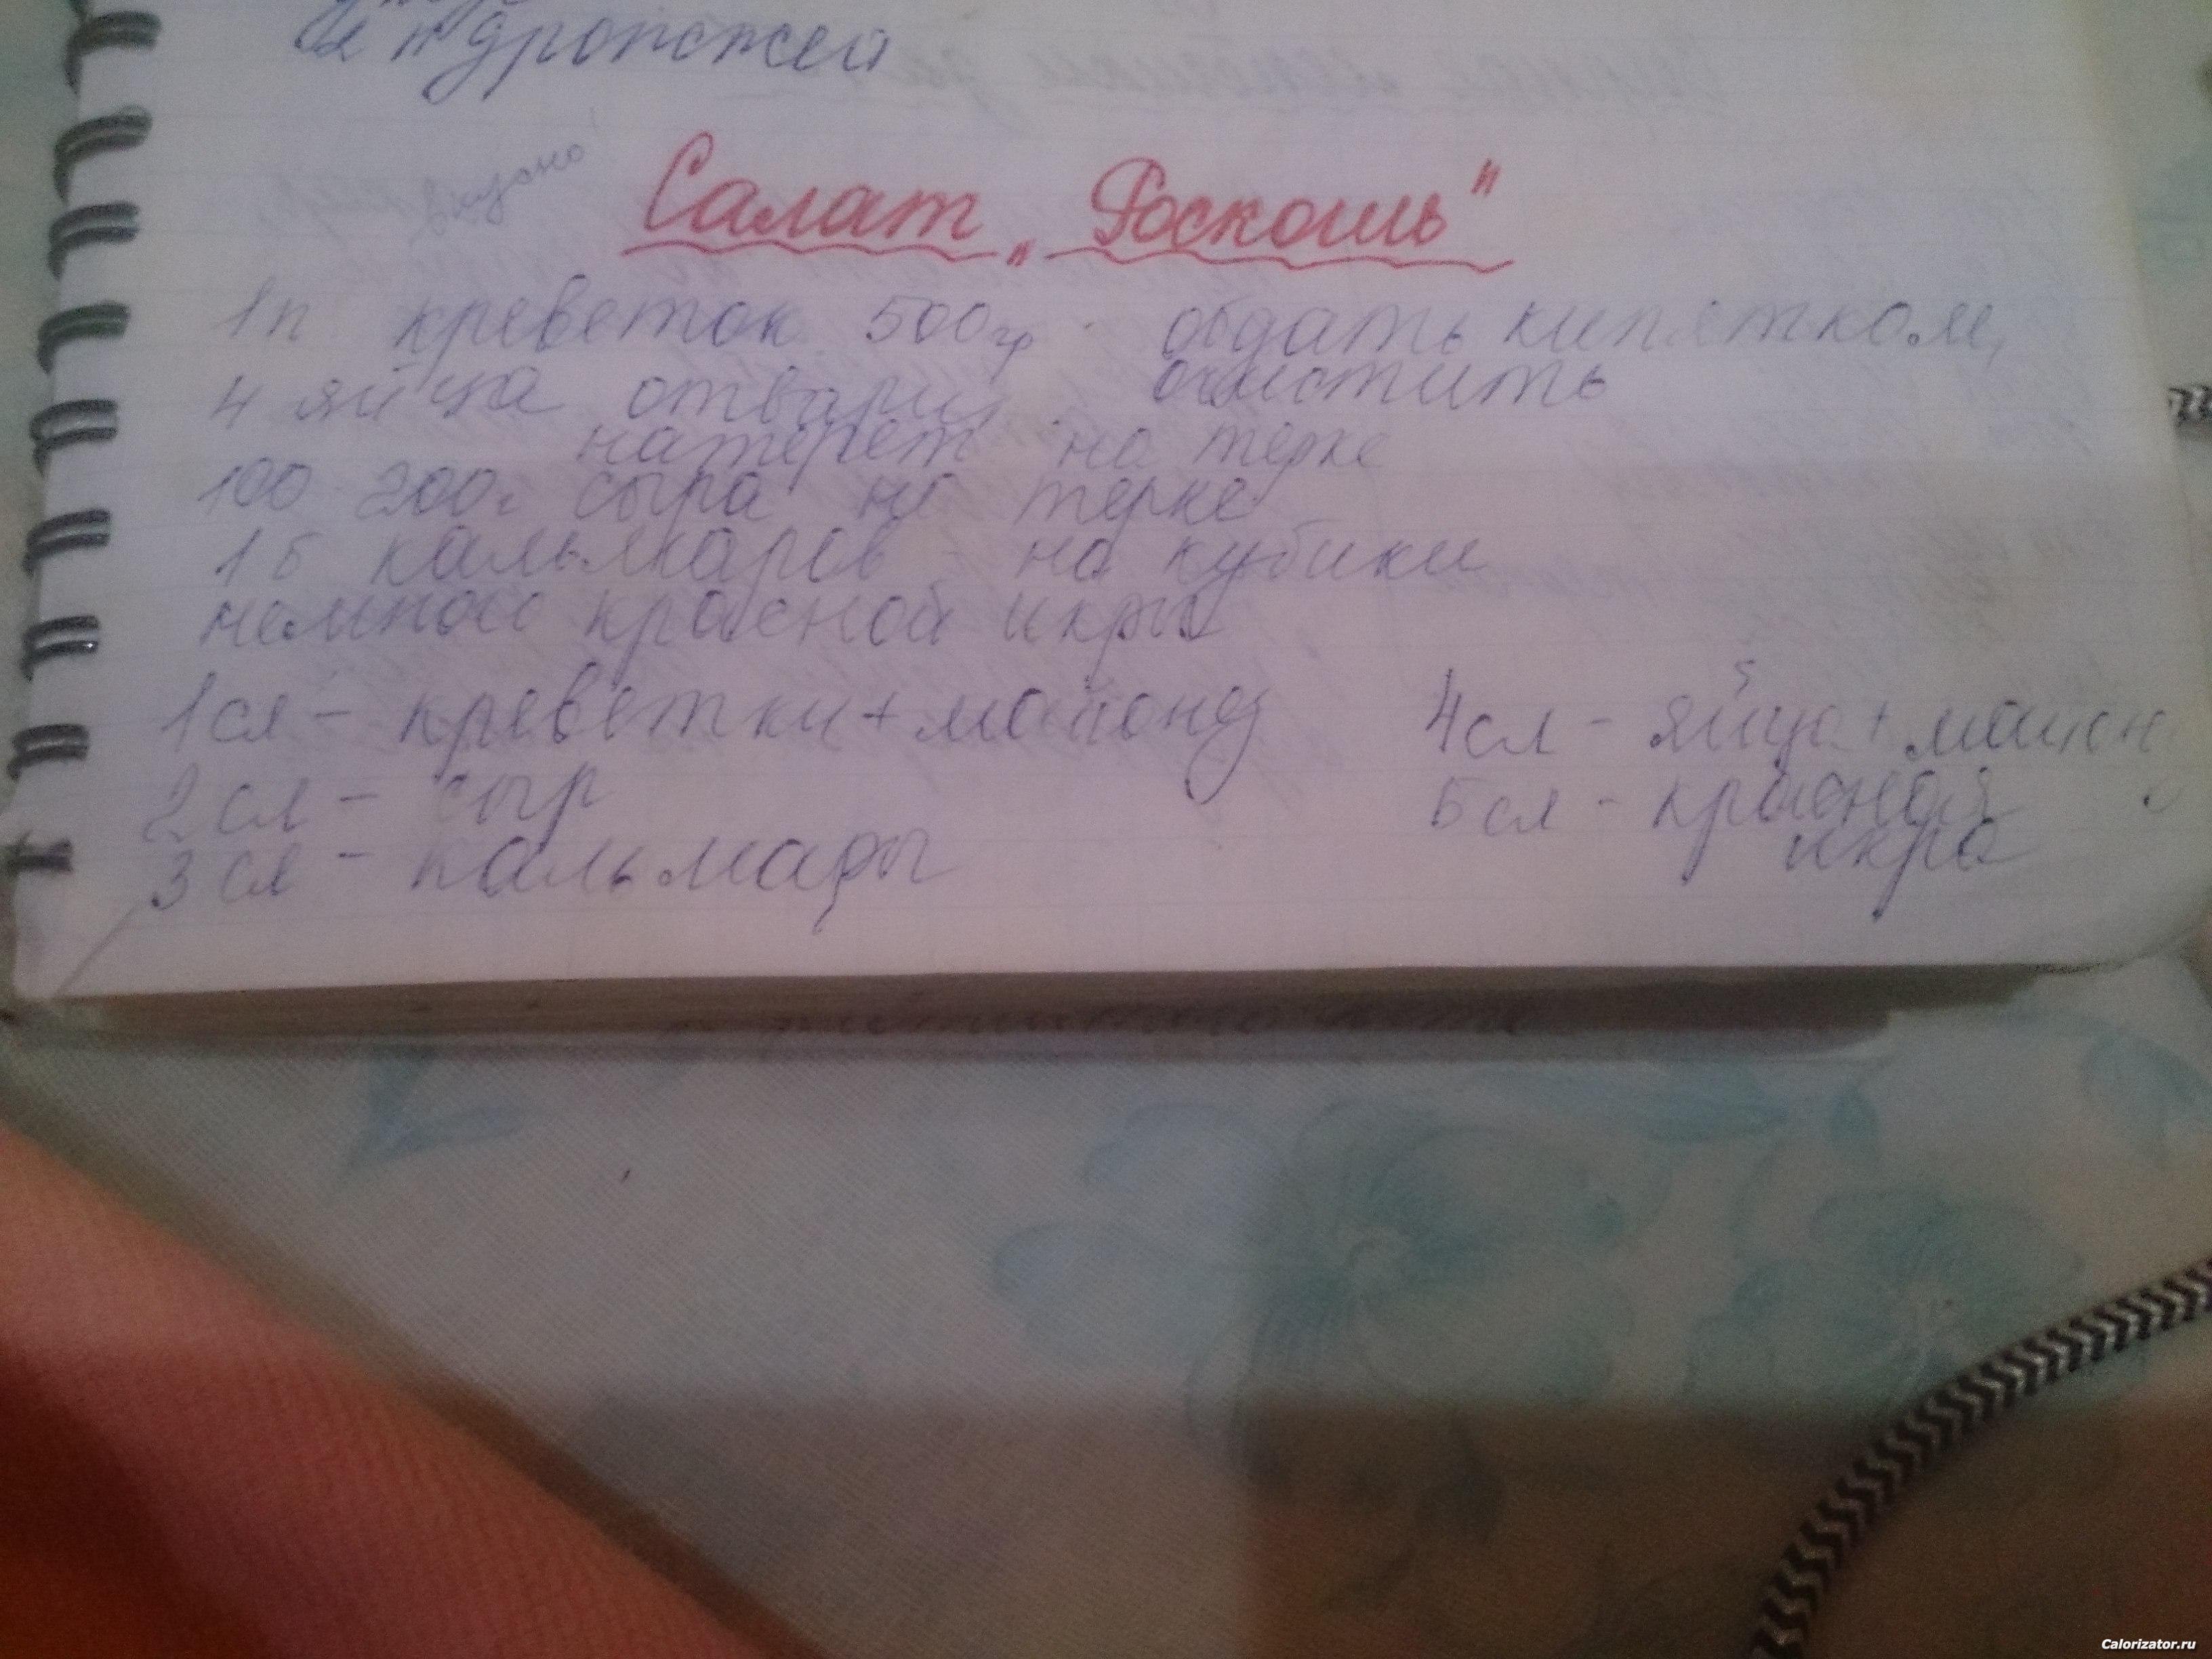 дрожжей
вкусно!
Салат „Роскошь"
1п креветок 500гр - обдать кипятком,
очистить
4 яйца отвари,
натереть на терке
100 200г сыра на терке
1б кальмаров - на кубики
немного красной икры
1сл - креветки + майонез
2сл - сыр
3сл - кальмары
4сл - яйца + майон
5сл - красная
икра
Calorizator.ru